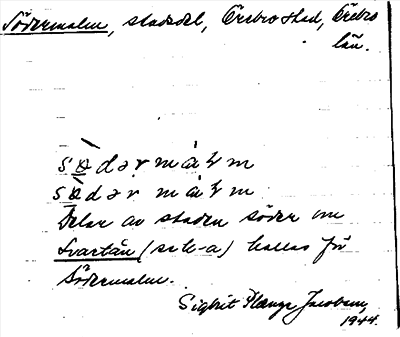 Södermalm, stadsdel, Örebro stad, Örebro
län.
sødər målm
sødər målm
Delar av staden söder om
Svartån (se k-a) kallas för
Södermalm.
Sigbrit Plænge Jacobson,
1944.